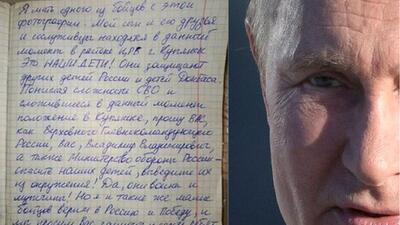 Я мать одного из бойцов с этой
фотографии. Мой сын и его друзья
и сослуживцы находятся в данный
момент в районе ЦРБ г Купянск
Это НАШИ ДЕТИ! Они защищают
других детей России и детей Донбасса.
Понимая сложность СВО и
сложившееся в данный момент
положение в Купянске, прошу ВАС,
как Верховного Главнокомандующего
России, вас, Владимир Владимирович,
а также Министерство обороны России
спасите наших детей, выведите их
из окружения! Да, они воины и
мужчины! Но я и также же мамы
бойцов верим в Россию и Победу, и
мы просим Вас